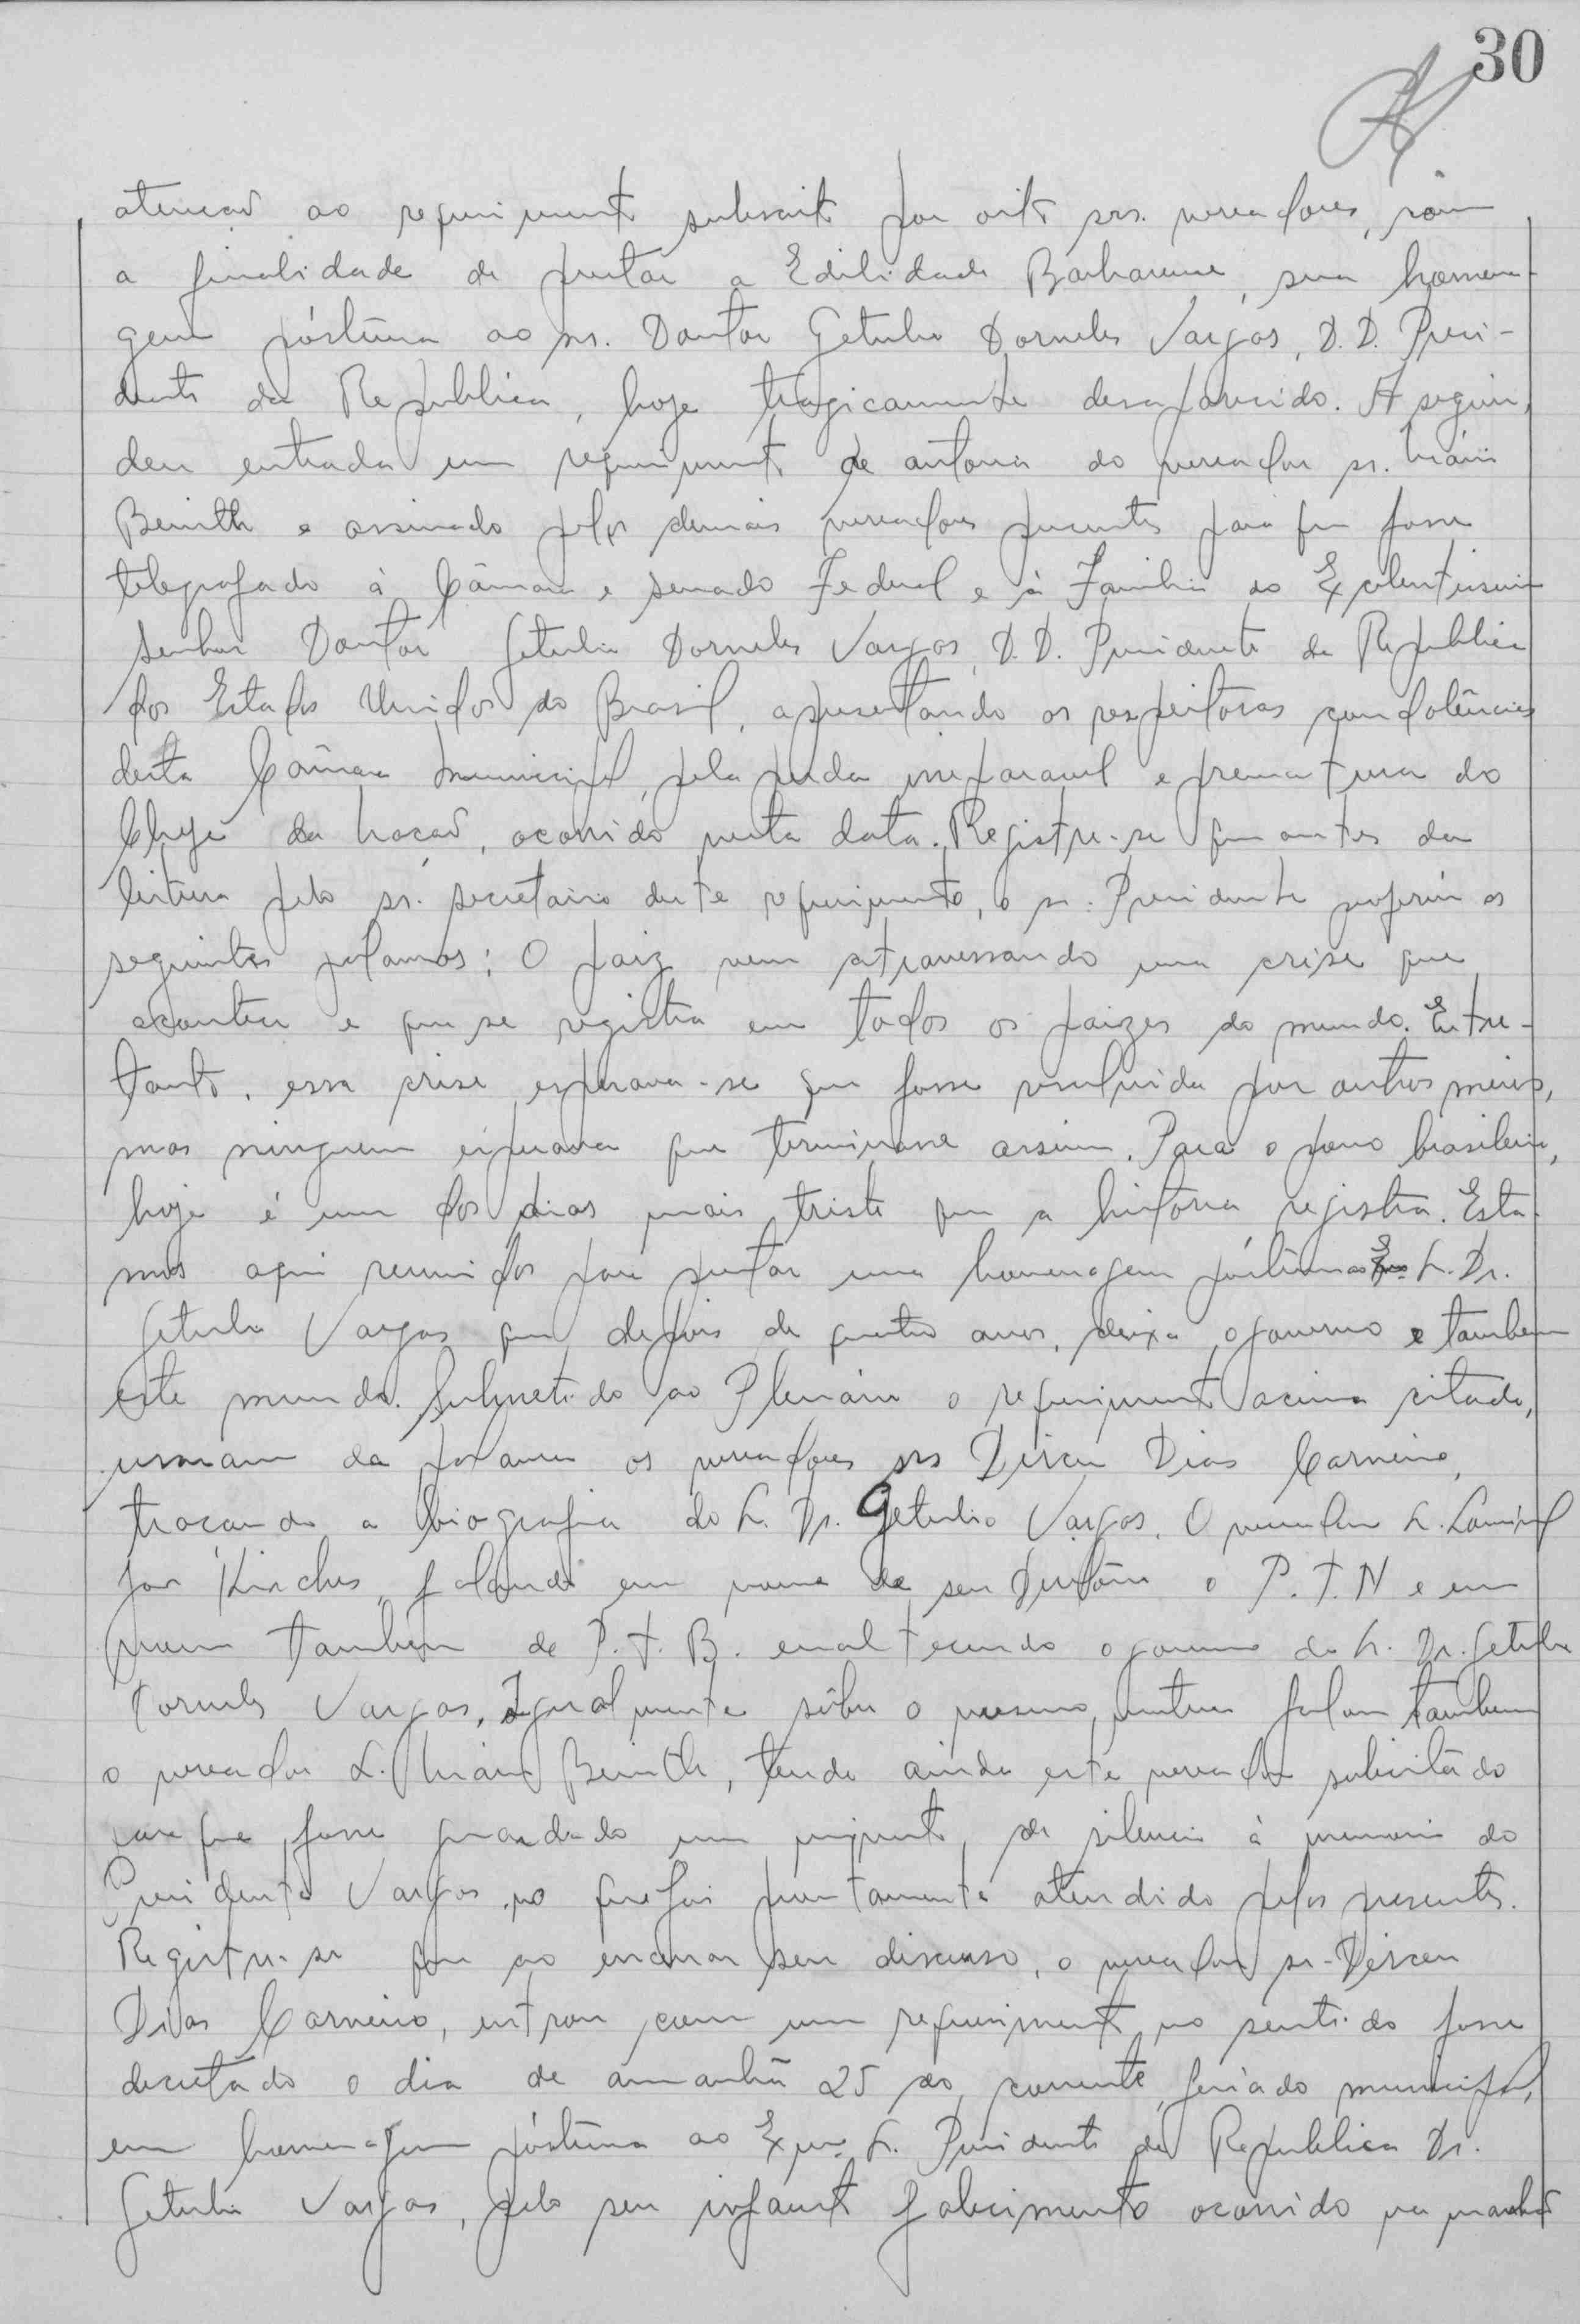 30
atenção ao requerimento subscrito por oito srs. vereadores, com
a finalidade de prestar a Edilidade Barbarense, sua homena-
gem póstuma ao sr. Doutor Getulio Dorneles Vargas, D.D. Presi-
dente da Republica, hoje tragicamente desaparecido. A seguir,
deu entrada um requerimento de autoria do vereador sr.
e assinado pelos demais vereadores presentes para que fosse
telegrafado à Câmara e Senado Federal e à Familia do Excelentissimo
Senhor Doutor Getulio Dorneles Vargas, D.D. Presidente da Republica
dos Estados Unidos do Brasil, apresentando as respeitosas condolências
desta Câmara Municipal, pela perda irreparavel e prematura do
Chefe da Nação, ocorrido nesta data. Registre-se que antes da
leitura pelo sr. secretario deste requerimento, o sr. Presidente proferiu as
seguintes palavras: O paiz vem atravessando uma crise que
acontece e que se registra em todos os paizes do mundo. Entre-
tanto, essa crise esperava-se que fosse resolvida por outros meios,
mas ninguem esperava que terminasse assim. Para o povo brasileiro,
hoje é um dos dias mais triste que a historia registra. Esta-
mos aqui reunidos para prestar uma homenagem póstuma ao S. Dr.
Getulio Vargas que depois de quatro anos, deixa o governo e tambem
este mundo. Submetido ao Plenário o requerimento acima citado,
usaram da palavra os vereadores srs Dirceu Dias Carneiro,
traçando a biografia do S. Dr. Getulio Vargas. O vereador S.
falando em nome de seu Partido o P.T.N e em
nome tambem do P.T.B. enaltecendo o governo do S. Dr. Getulio
Dorneles Vargas. Igualmente sôbre o mesmo, falou tambem
o vereador S. tendo ainda este vereador solicitado
para que fosse guardado um minuto de silencio à memoria do
Presidente Vargas, no que foi prontamente atendido pelos presentes.
Registre-se que ao encerrar seu discurso, o vereador sr. Dirceu
Dias Carneiro, entrou com um requerimento no sentido fosse
decretado o dia de amanhã 25 do corrente, feriado municipal,
em homenagem póstuma ao Exmo. S. Presidente da Republica Dr.
Getulio Vargas, pelo seu infausto falecimento ocorrido na manhã